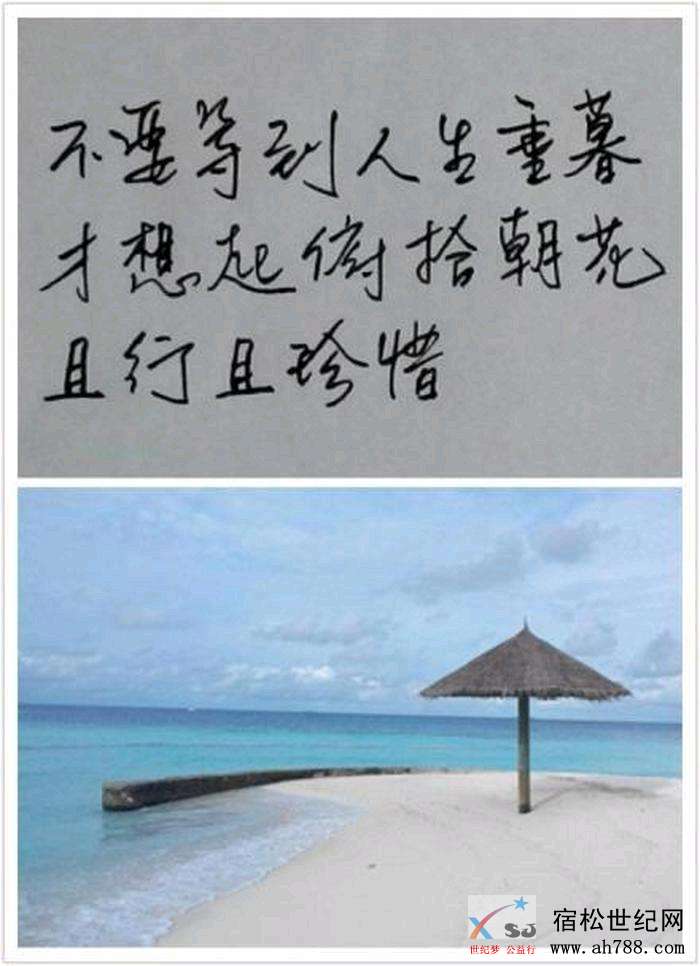 不要等到人生垂暮
才想起俯拾朝花
且行且珍惜
XSJ
世纪梦 公益行
宿松世纪网
www.ah788.com